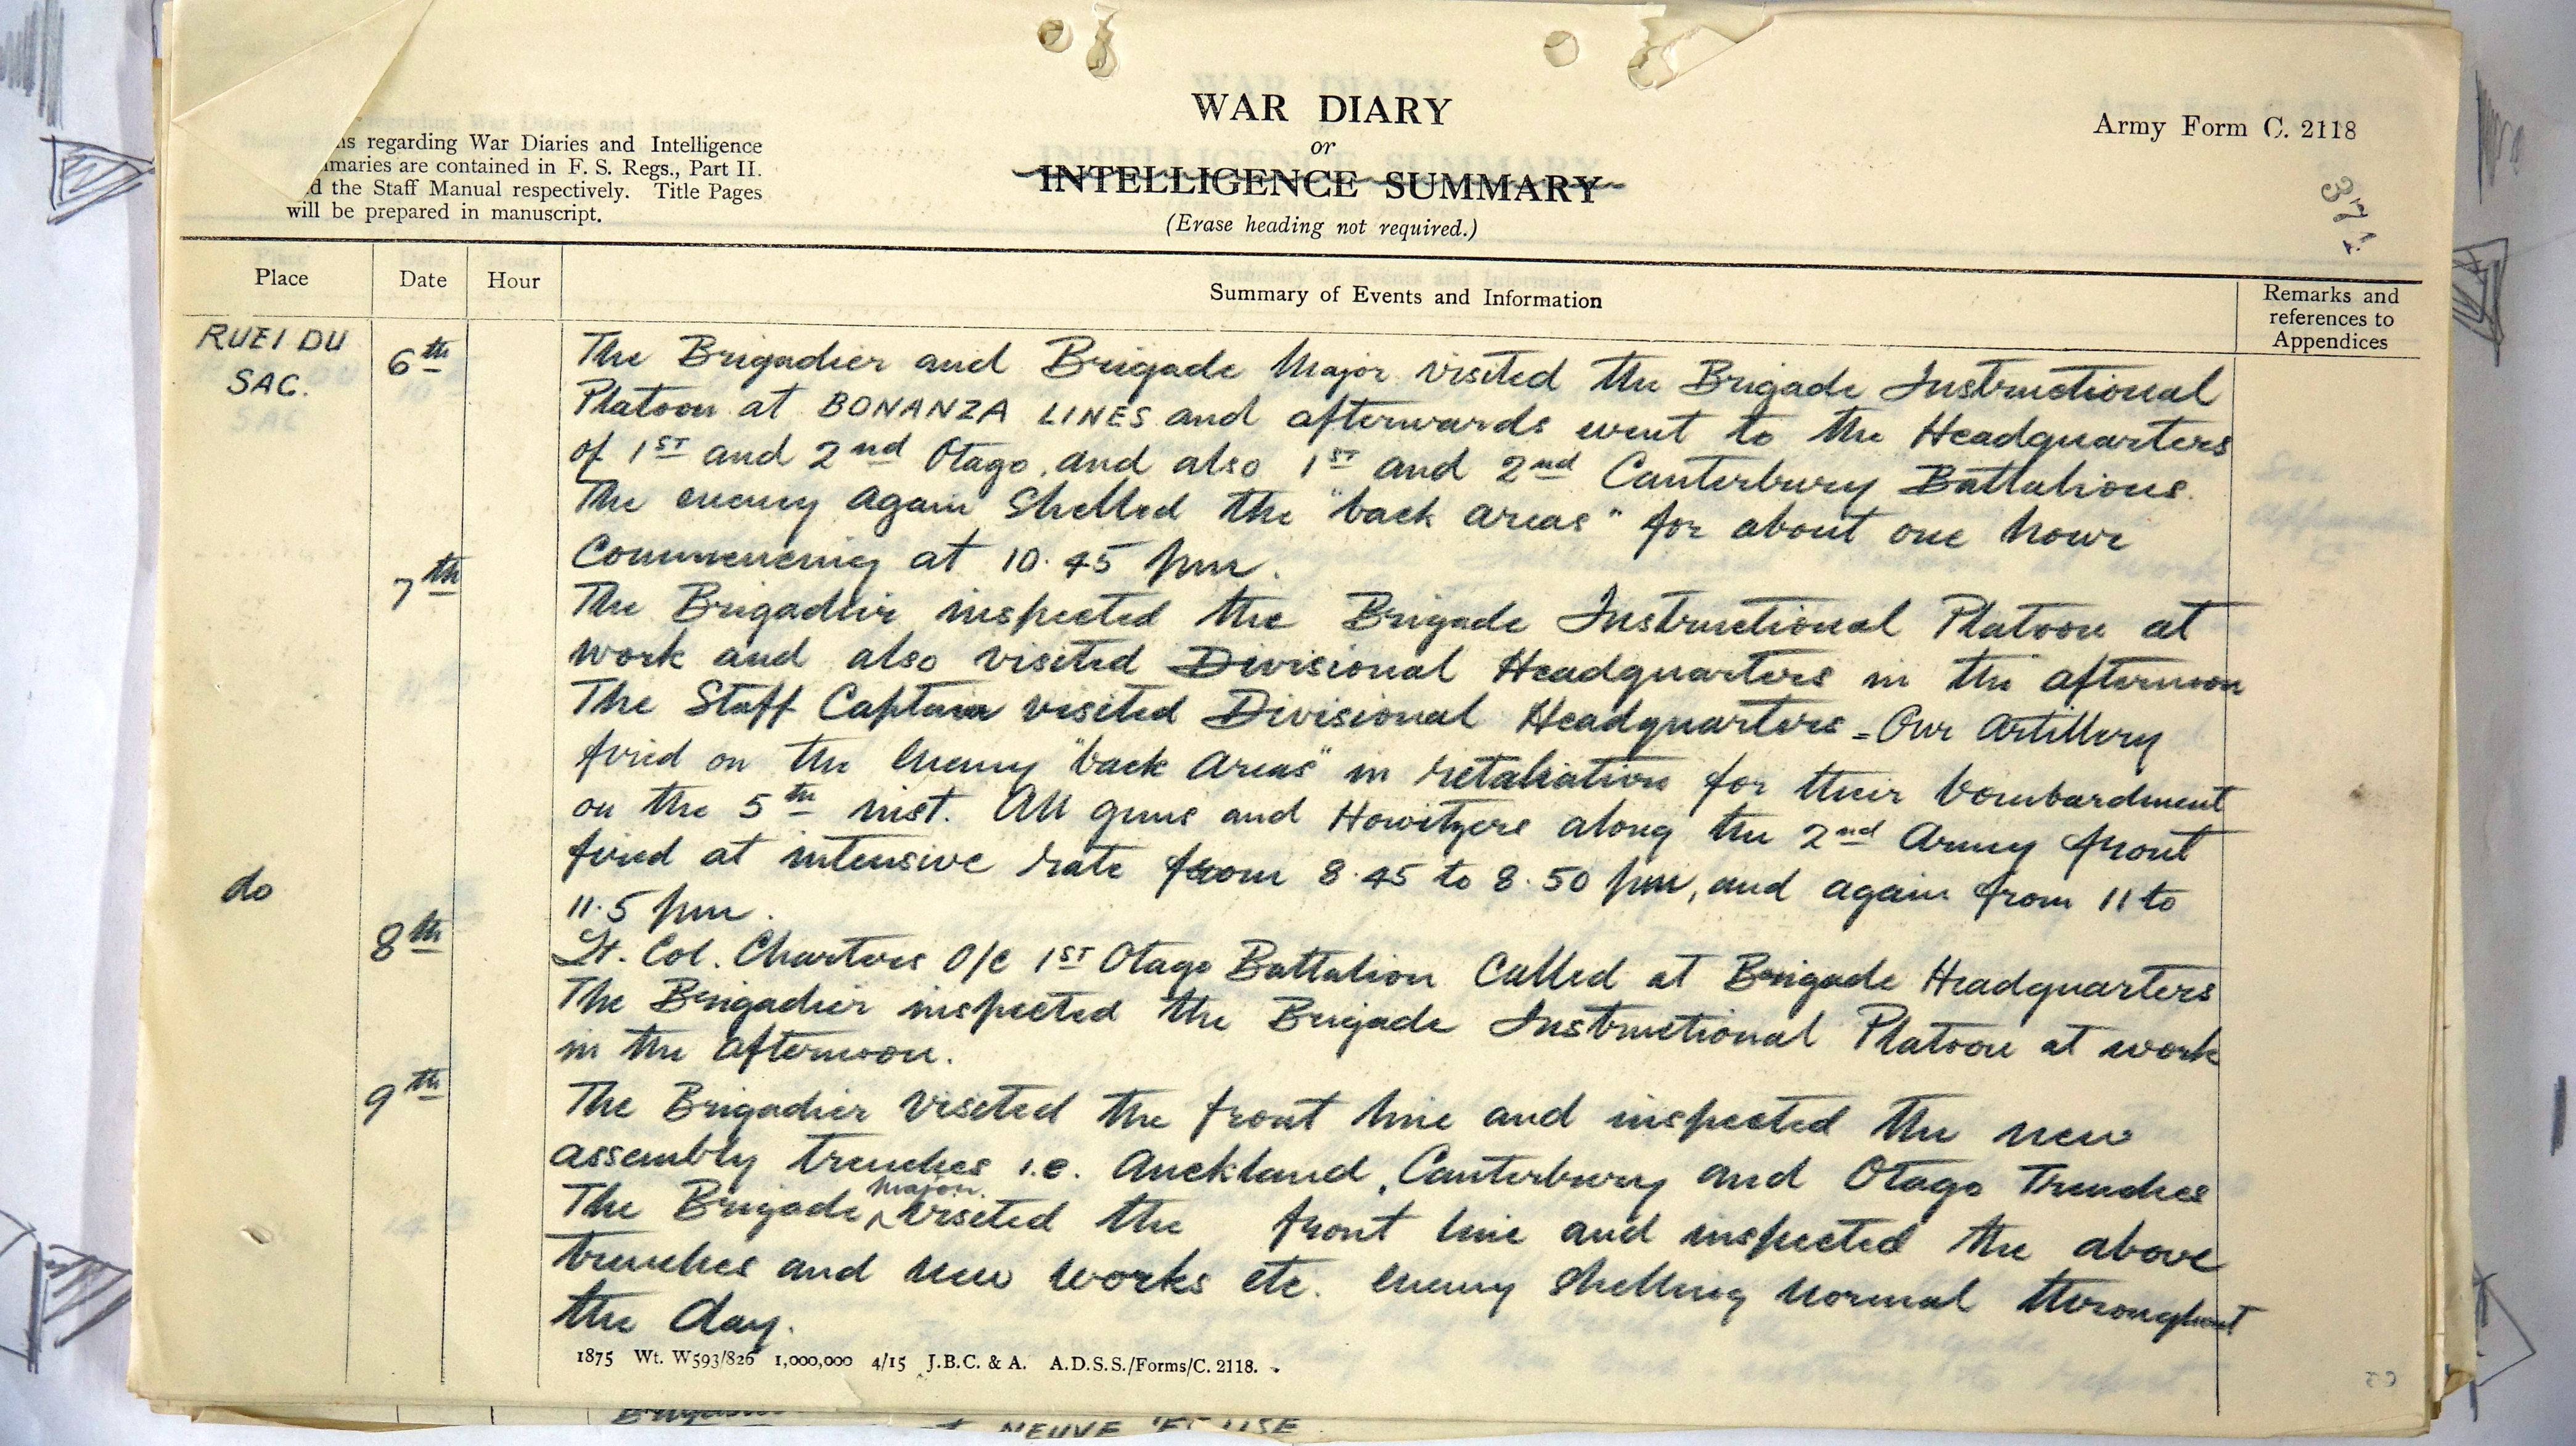 WAR DIARY
or
INTELLIGENCE SUMMARY
(Erase heading not required.)
Army Form C. 2118
371.
ns regarding War Diaries and Intelligence
maries are contained in F. S. Regs., Part II.
d the Staff Manual respectively. Title Pages
will be prepared in manuscript.
Place Date Hour Summary of Events and Information Remarks and references to Appendices
RUEI DU
SAC.
6th The Brigadier and Brigade Major visited the Brigade Instructional
Platoon at BONANZA LINES and afterwards went to the Headquarters
of 1ST and 2nd Otago, and also 1ST and 2nd Canterbury Battalions.
The enemy again shelled the "back areas" for about one hour
Commencing at 10.45 pm.
7th The Brigadier inspected the Brigade Instructional Platoon at
work and also visited Divisional Headquarters in the afternoon
The Staff Captain visited Divisional Headquarters = Our Artillery
fired on the Enemy "back Areas" in retaliation for their bombardment
on the 5th inst. All guns and Howitzers along the 2nd Army front
fired at intensive rate from 8.45 to 8.50 pm, and again from 11 to
do
11.5 pm.
8th Lt. Col. Charters O/C 1ST Otago Battalion Called at Brigade Headquarters
The Brigadier inspected the Brigade Instructional Platoon at work
in the afternoon.
9th The Brigadier visited the front line and inspected the new
assembly trenches i.e. Auckland, Canterbury and Otago Trenches
The Brigade Major visited the front line and inspected the above
trenches and new works etc. Enemy shelling normal throughout
the day.
1875 Wt. W593/826 1,000,000 4/15 J.B.C. & A. A.D.S.S./Forms/C. 2118.